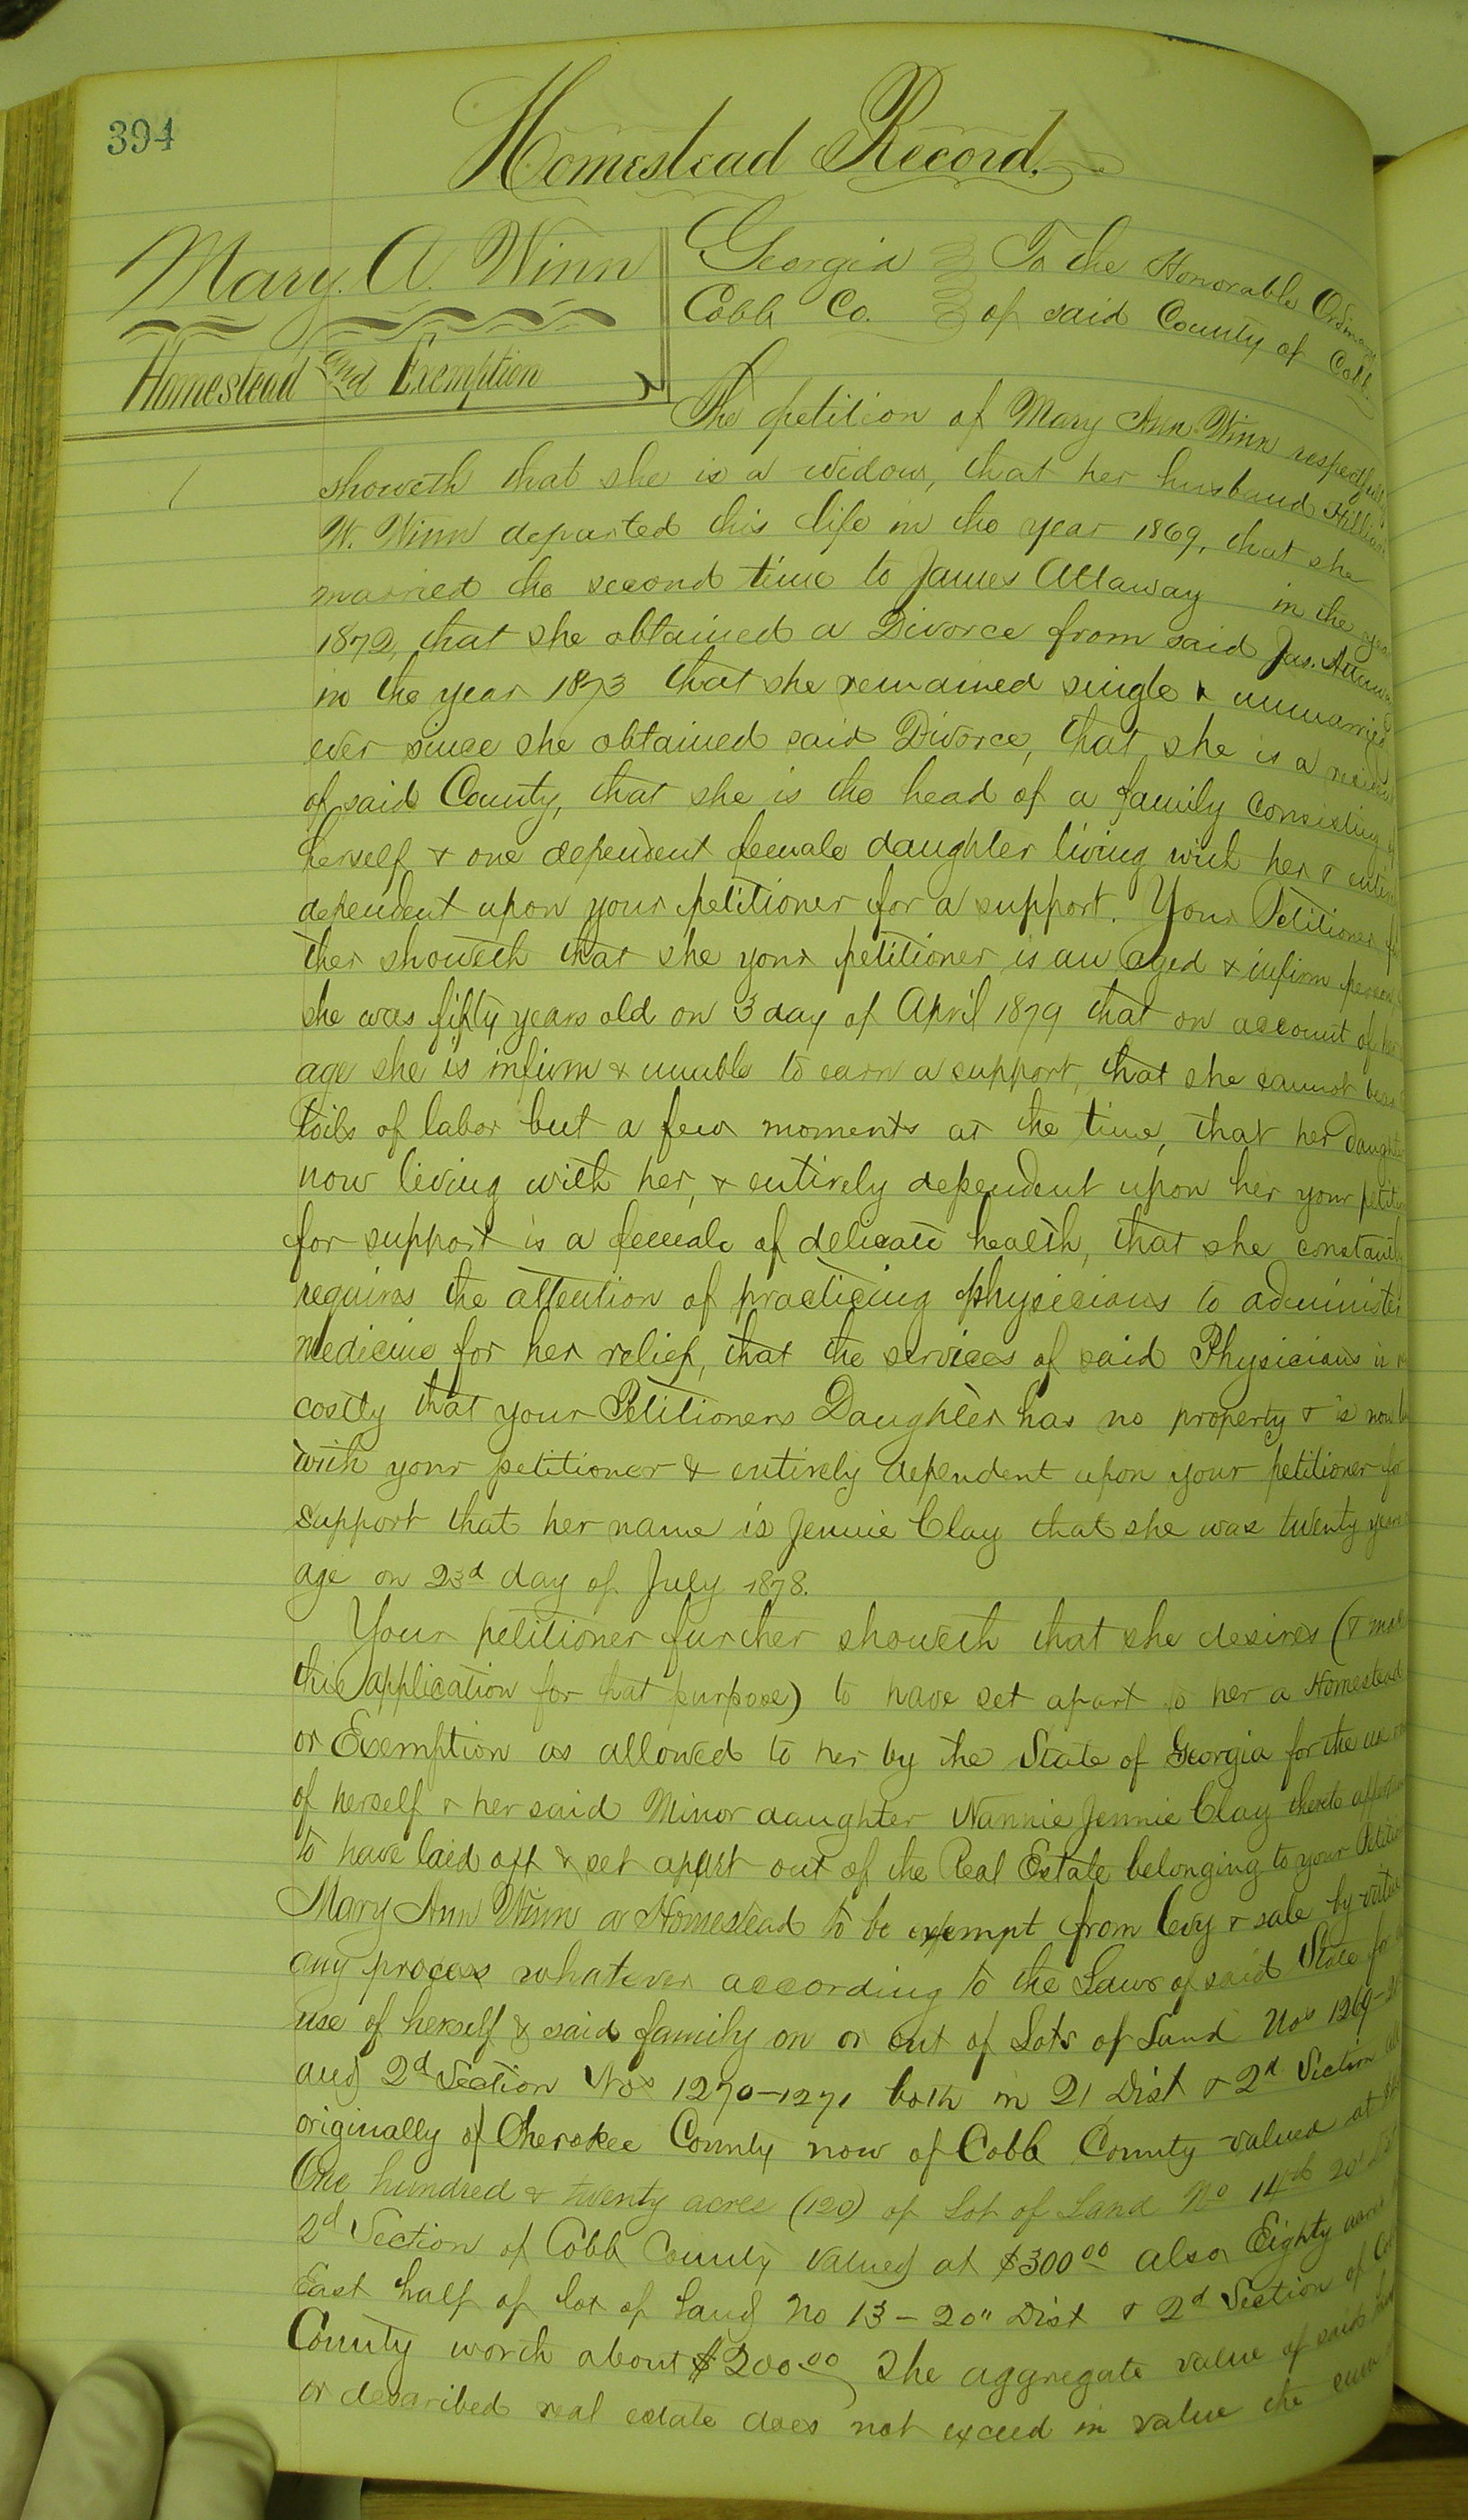 394
Homestead Record.
Mary. A. Winn
Homestead and Exemption
Georgia To the Honorable
Cobb Co. of said County of Cobb.
The petition of Mary Ann Winn
showeth that she is a widow, that her husband
W. Winn departed this life in the year 1869, that she
married the second time to James Attaway in the
1872, that she obtained a Divorce from said Jas.
in the year 1873 that she remained single & unmarried
ever since she obtained said Divorce, that she is a
of said County, that she is the head of a family consisting
herself & one dependent female daughter living with her &
dependent upon your petitioner for a support. Your Petitioner
ther showeth that she your petitioner is an aged & infirm
she was fifty years old on 3 day of April 1879 that on account of
age she is infirm & unable to earn a support, that she cannot
toils of labor but a few moments at the time, that her
now living with her, & entirely dependent upon her your
for support is a female of delicate health, that she
requires the attention of practicing physicians to administer
medicine for her relief, that the services of said Physicians is
costly that your Petitioners Daughter has no property & is now
with your petitioner & entirely dependent upon your petitioner for
support that her name is Jennie Clay that she was twenty years
age on 23d day of July 1878.
Your petitioner further showeth that she desires (&
this application for that purpose) to have set apart to her a Homestead
or Exemption as allowed to her by the State of Georgia for the
of herself & her said Minor daughter Nannie Jennie Clay
to have laid off & set apart out of the Real Estate belonging to your
Mary Ann Winn a Homestead to be exempt from levy & sale by
any process whatever according to the Laws of said State
use of herself & said family on or out of Lots of Land Nos 1269
and 2d Section Nos 1270-1271 both in 21 Dist & 2d Section
originally of Cherokee County now of Cobb County valued at
One hundred & twenty acres (120) of Lot of Land No 14
2d Section of Cobb County valued at $300.00 also Eighty acres
East half of lot of land No 13 - 20" Dist & 2d Section of
County worth about $200.00 The aggregate value of said
or described real estate does not exceed in value the